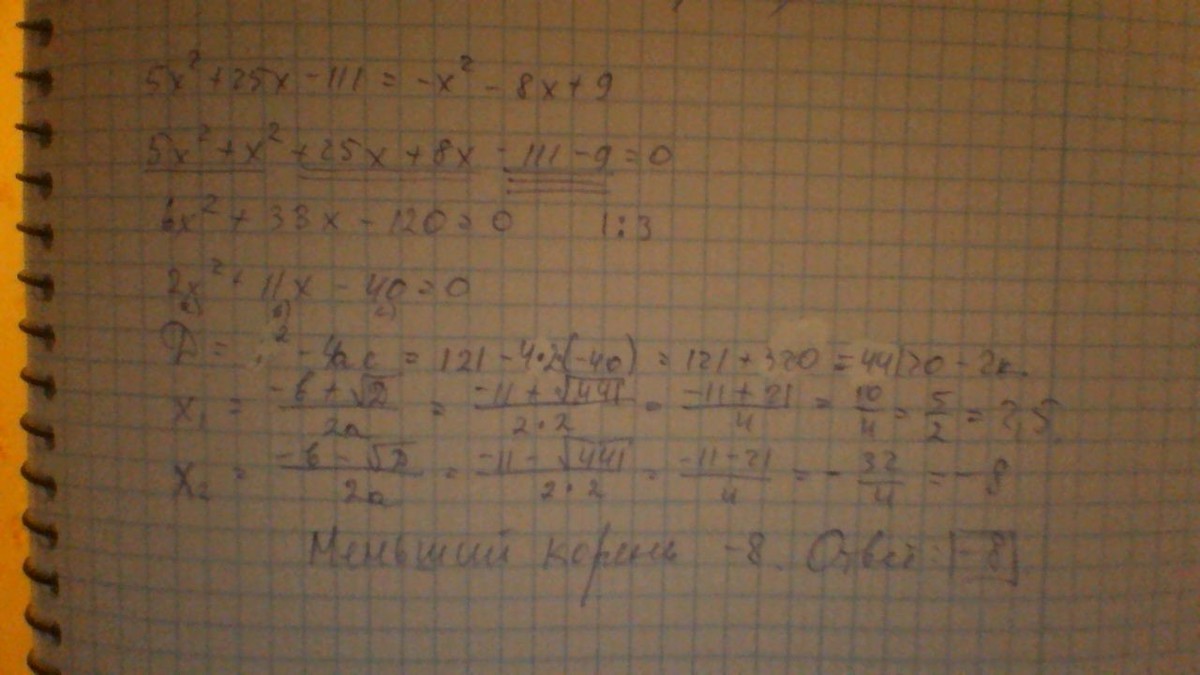 5x² + 25x - 111 = -x² - 8x + 9
5x² + x² + 25x + 8x - 111 - 9 = 0
6x² + 33x - 120 = 0 | : 3
2x² + 11x - 40 = 0
D = ² - 4ac = 121 - 4·2(-40) = 121 + 320 = 441 > 0 - 2к.
x₁ = (-b + √D)/2a = (-11 + √441)/2·2 = (-11 + 21)/4 = 10/4 = 5/2 = 2,5.
x₂ = (-b - √D)/2a = (-11 - √441)/2·2 = (-11 - 21)/4 = - 32/4 = -8
Меньший корень -8. Ответ: -8